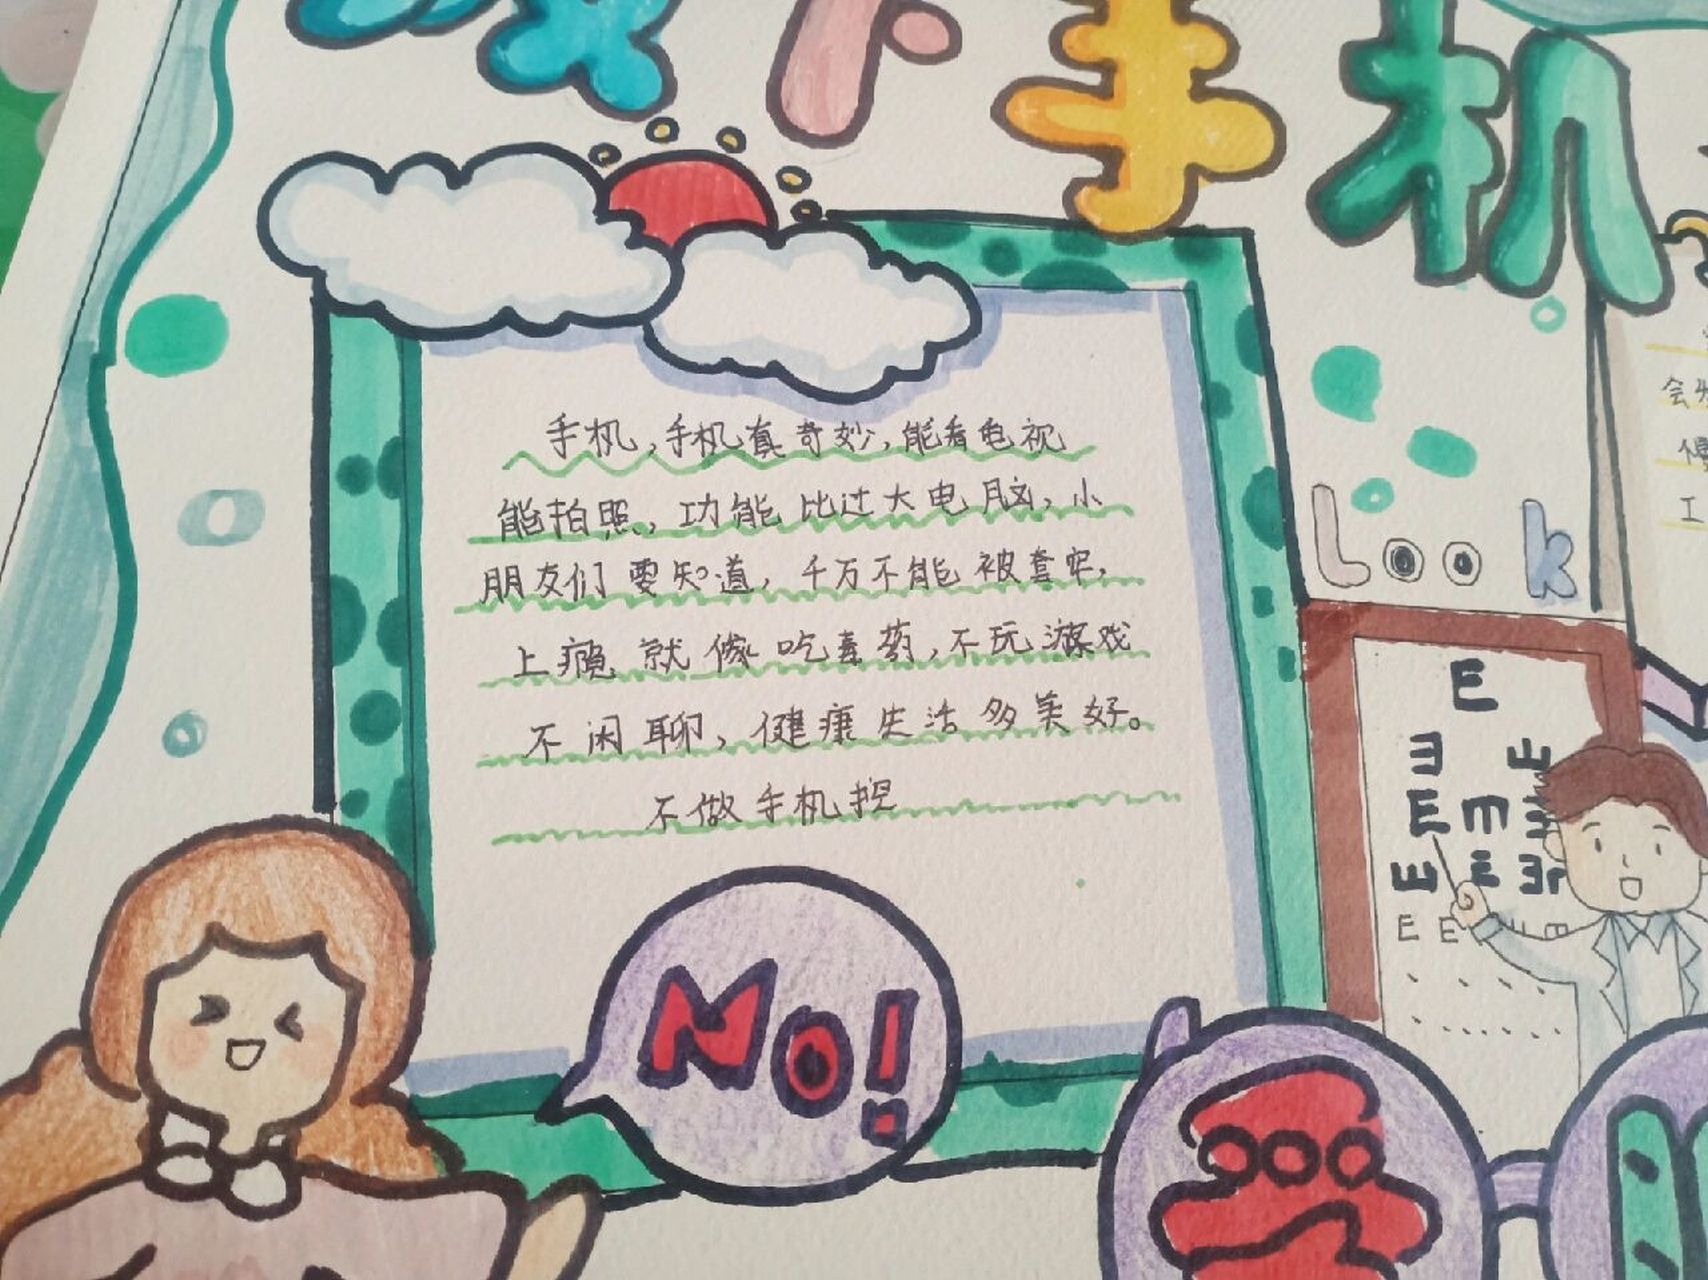 下手机
手机,手机真奇妙,能看电视
能拍照,功能比过大电脑,小
朋友们要知道,千万不能被套牢,
上瘾就像吃毒药,不玩游戏
不闲聊,健康生活多美好。
不做手机控
Look
会
工
E
E
E
NO!